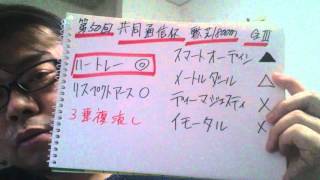 第50回 共同通信杯 東京1800m GⅢ
ハートレー ◎
リスペクトアース ○
3重複流し
スマートオーディン ▲
メートルダール △
ディーマジェスティ ×
イモータル ×